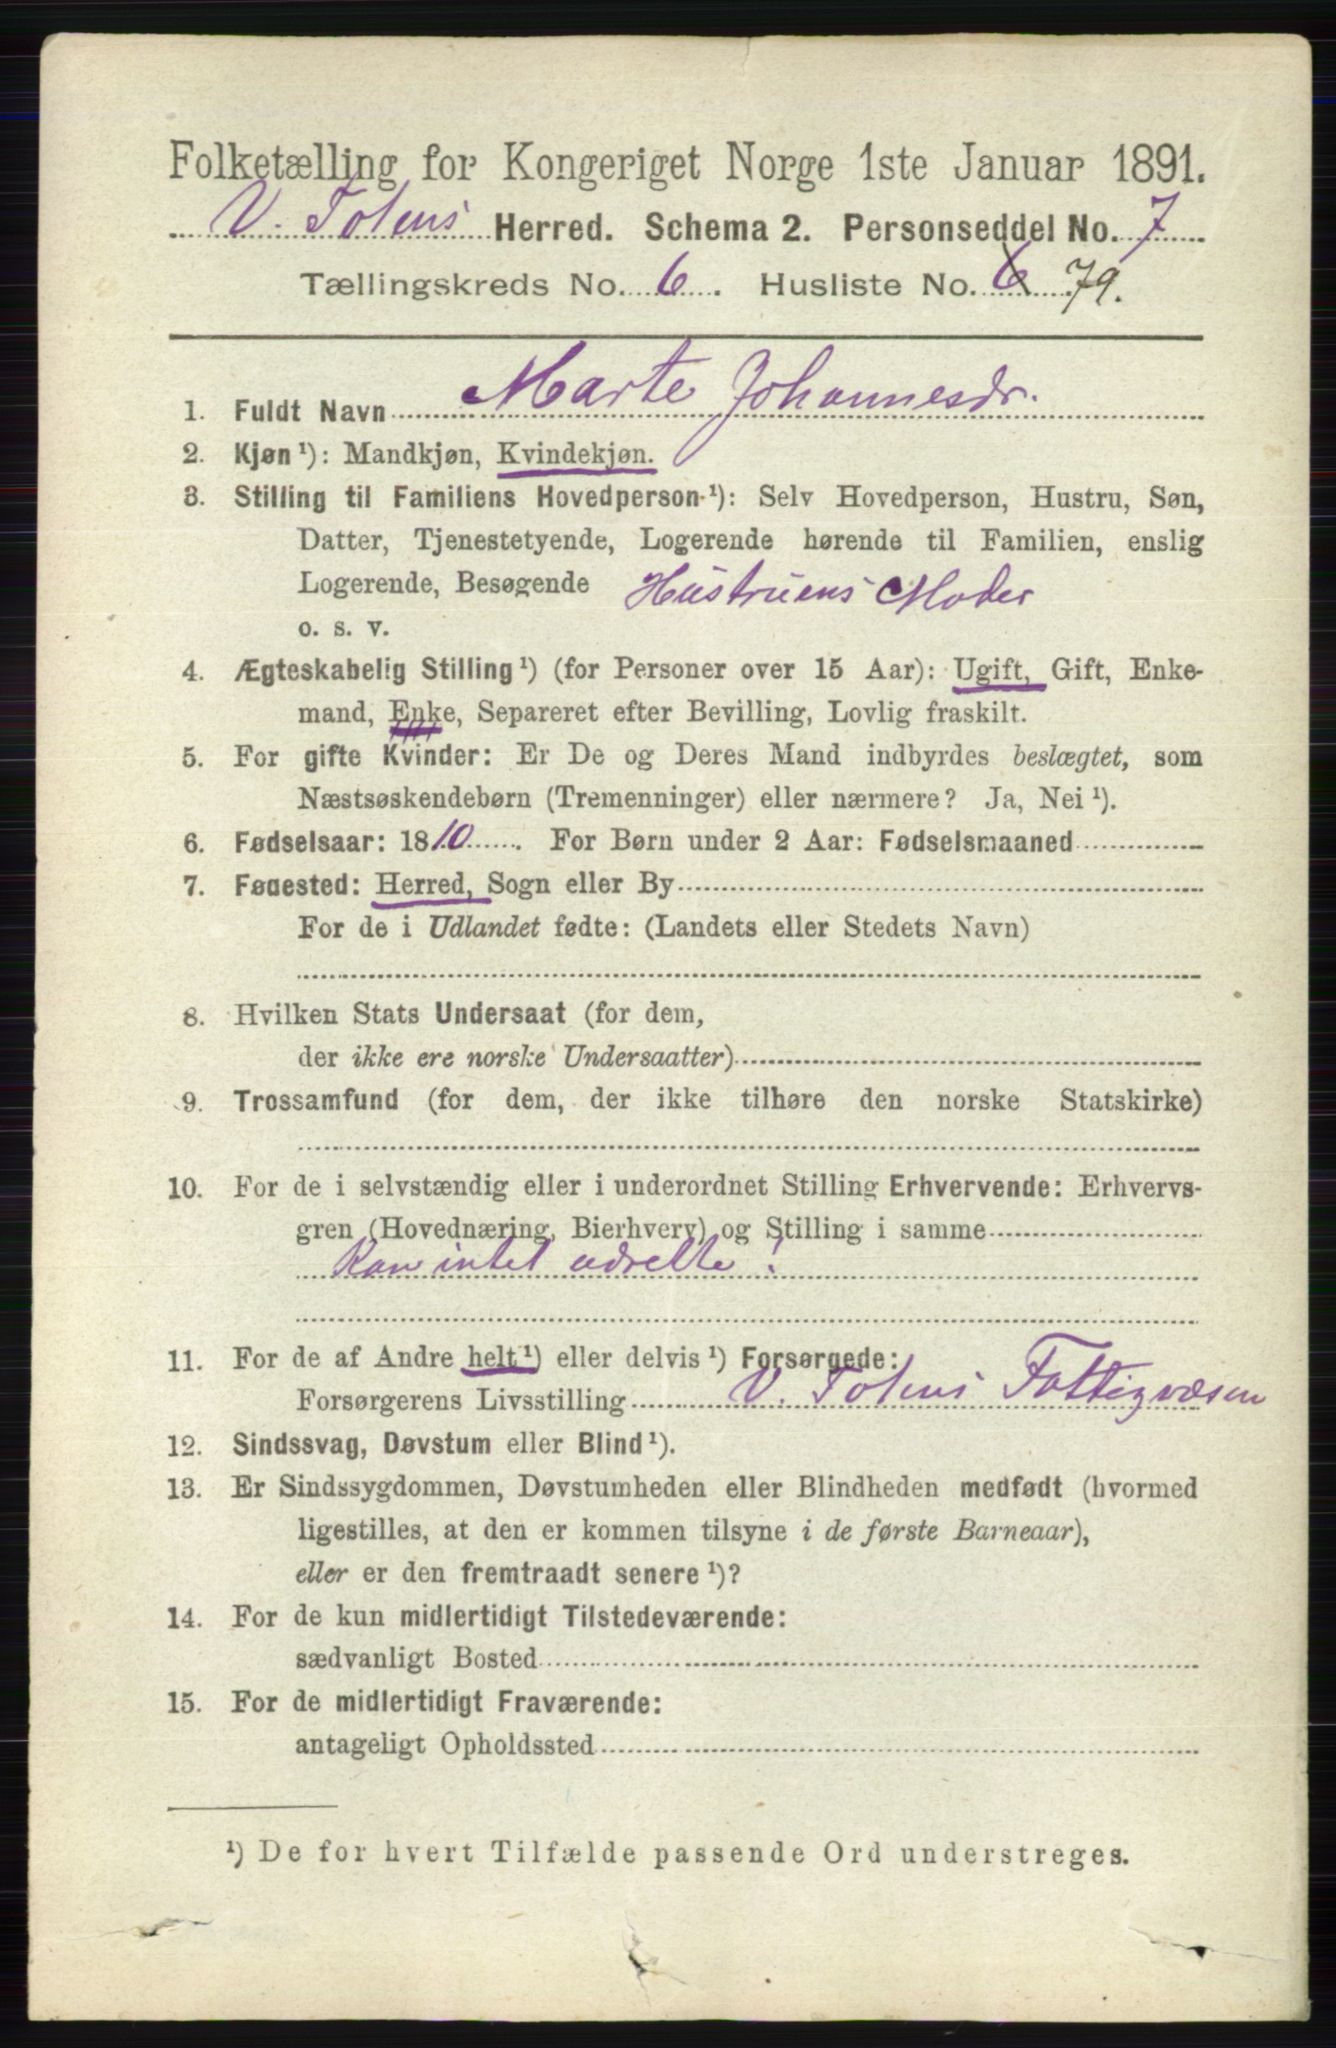 Folketælling for Kongeriget Norge 1ste Januar 1891.
V. Totens Herred. Schema 2. Personseddel No. 7
Tællingskreds No. 6. Husliste No. 6 79.
1. Fuldt Navn Marte Johannesdr.
2. Kjøn ¹): Mandkjøn, Kvindekjøn.
3. Stilling til Familiens Hovedperson ¹): Selv Hovedperson, Hustru, Søn,
Datter, Tjenestetyende, Logerende hørende til Familien, enslig
Logerende, Besøgende Hustruens Moder
o. s. v.
4. Ægteskabelig Stilling ¹) (for Personer over 15 Aar): Ugift, Gift, Enke-
mand, Enke, Separeret efter Bevilling, Lovlig fraskilt.
5. For gifte Kvinder: Er De og Deres Mand indbyrdes beslægtet, som
Næstsøskendebørn (Tremenninger) eller nærmere? Ja, Nei ¹).
6. Fødselsaar: 1810. For Børn under 2 Aar: Fødselsmaaned
7. Fødested: Herred, Sogn eller By
For de i Udlandet fødte: (Landets eller Stedets Navn)
8. Hvilken Stats Undersaat (for dem,
der ikke ere norske Undersaatter)
9. Trossamfund (for dem, der ikke tilhøre den norske Statskirke)
10. For de i selvstændig eller i underordnet Stilling Erhvervende: Erhvervs-
gren (Hovednæring, Bierhverv) og Stilling i samme
Kan intet udrette!
11. For de af Andre helt ¹) eller delvis ¹) Forsørgede:
Forsørgerens Livsstilling V. Totens Fattigvæsen
12. Sindssvag, Døvstum eller Blind ¹).
13. Er Sindssygdommen, Døvstumheden eller Blindheden medfødt (hvormed
ligestilles, at den er kommen tilsyne i de første Barneaar),
eller er den fremtraadt senere ¹)?
14. For de kun midlertidigt Tilstedeværende:
sædvanligt Bosted
15. For de midlertidigt Fraværende:
antageligt Opholdssted
¹) De for hvert Tilfælde passende Ord understreges.